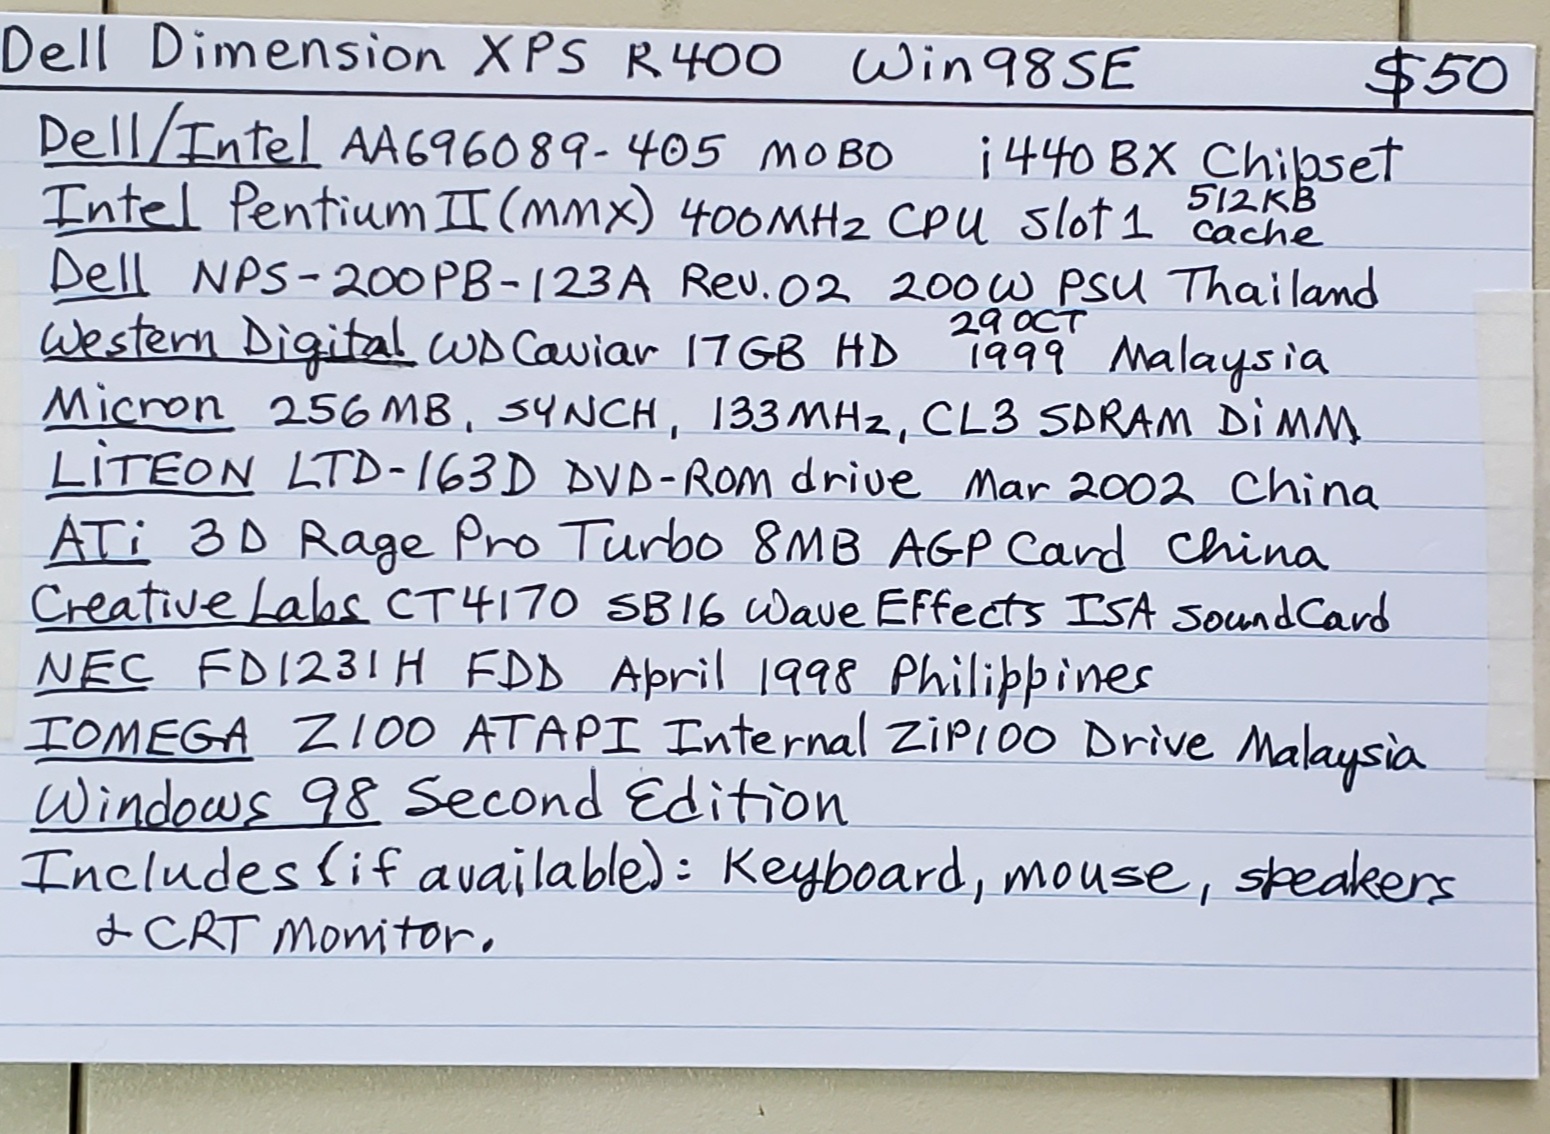 Dell Dimension XPS R400 Win98SE $50
Dell/Intel AA696089-405 MOBO i440BX Chipset
Intel Pentium II (MMX) 400MHz CPU Slot 1 512KB cache
Dell NPS-200PB-123A Rev.02 200W PSU Thailand
Western Digital WD Caviar 17GB HD 29 OCT 1999 Malaysia
Micron 256MB, SYNCH, 133MHz, CL3 SDRAM DiMM
LiTEON LTD-163D DVD-ROM drive Mar 2002 China
ATi 3D Rage Pro Turbo 8MB AGP Card China
Creative Labs CT4170 SB16 Wave Effects ISA SoundCard
NEC FD1231H FDD April 1998 Philippines
IOMEGA Z100 ATAPI Internal ZiP100 Drive Malaysia
Windows 98 Second Edition
Includes (if available): Keyboard, mouse, speakers
& CRT Monitor.